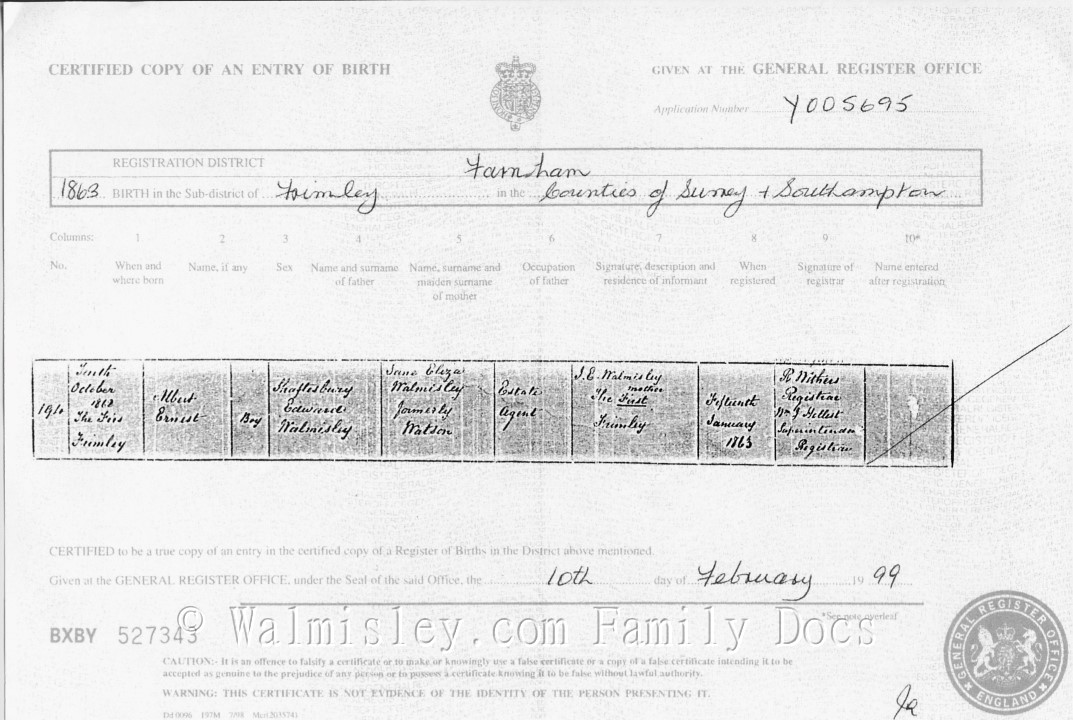 CERTIFIED COPY OF AN ENTRY OF BIRTH
GIVEN AT THE GENERAL REGISTER OFFICE
Application Number Y005695
REGISTRATION DISTRICT Farnham
1863 BIRTH in the Sub-district of Frimley in the Counties of Surrey + Southampton
Columns: 1 2 3 4 5 6 7 8 9 10*
No.
When and
where born
Name, if any
Sex
Name and surname
of father
Name, surname and
maiden surname
of mother
Occupation
of father
Signature, description and
residence of informant
When
registered
Signature of
registrar
Name entered
after registration
Tenth
October
1862
The Firs
Frimley
Albert
Ernest
Boy
Shaftesbury
Edward
Walmisley
Jane Eliza
Walmisley
formerly
Watson
Estate
Agent
J. E. Walmisley
mother
The First
Frimley
Fifteenth
January
1863
R Withers
Registrar
Superintendent
Registrar
CERTIFIED to be a true copy of an entry in the certified copy of a Register of Births in the District above mentioned.
Given at the GENERAL REGISTER OFFICE, under the Seal of the said Office, the 10th day of February 19 99
*See note overleaf
BXBY 527343
© Walmisley.com Family Docs
CAUTION:- It is an offence to falsify a certificate or to make or knowingly use a false certificate or a copy of a false certificate intending it to be
accepted as genuine to the prejudice of any person or to possess a certificate knowing it to be false without lawful authority.
WARNING: THIS CERTIFICATE IS NOT EVIDENCE OF THE IDENTITY OF THE PERSON PRESENTING IT.
GENERAL REGISTER OFFICE
ENGLAND